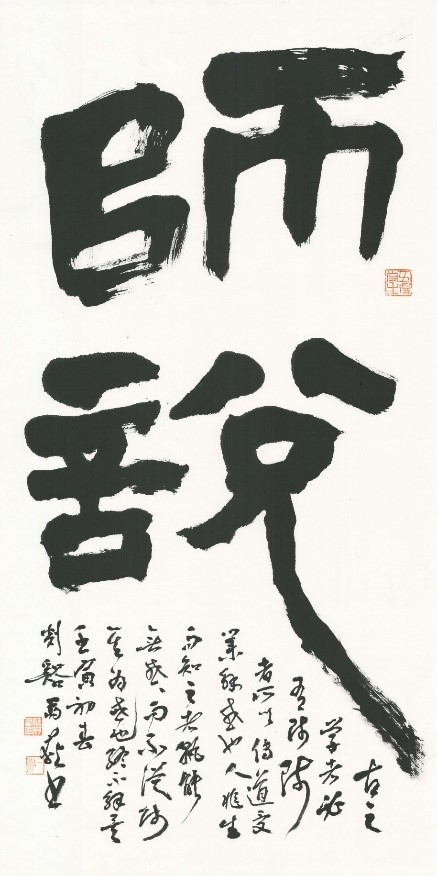 師說
古之
学者必
有师师
者所以傳道受
業解惑也人非生
而知之者孰能
無惑〻而不從师
其为惑也終不解矣
壬寅初春
剡谿 書